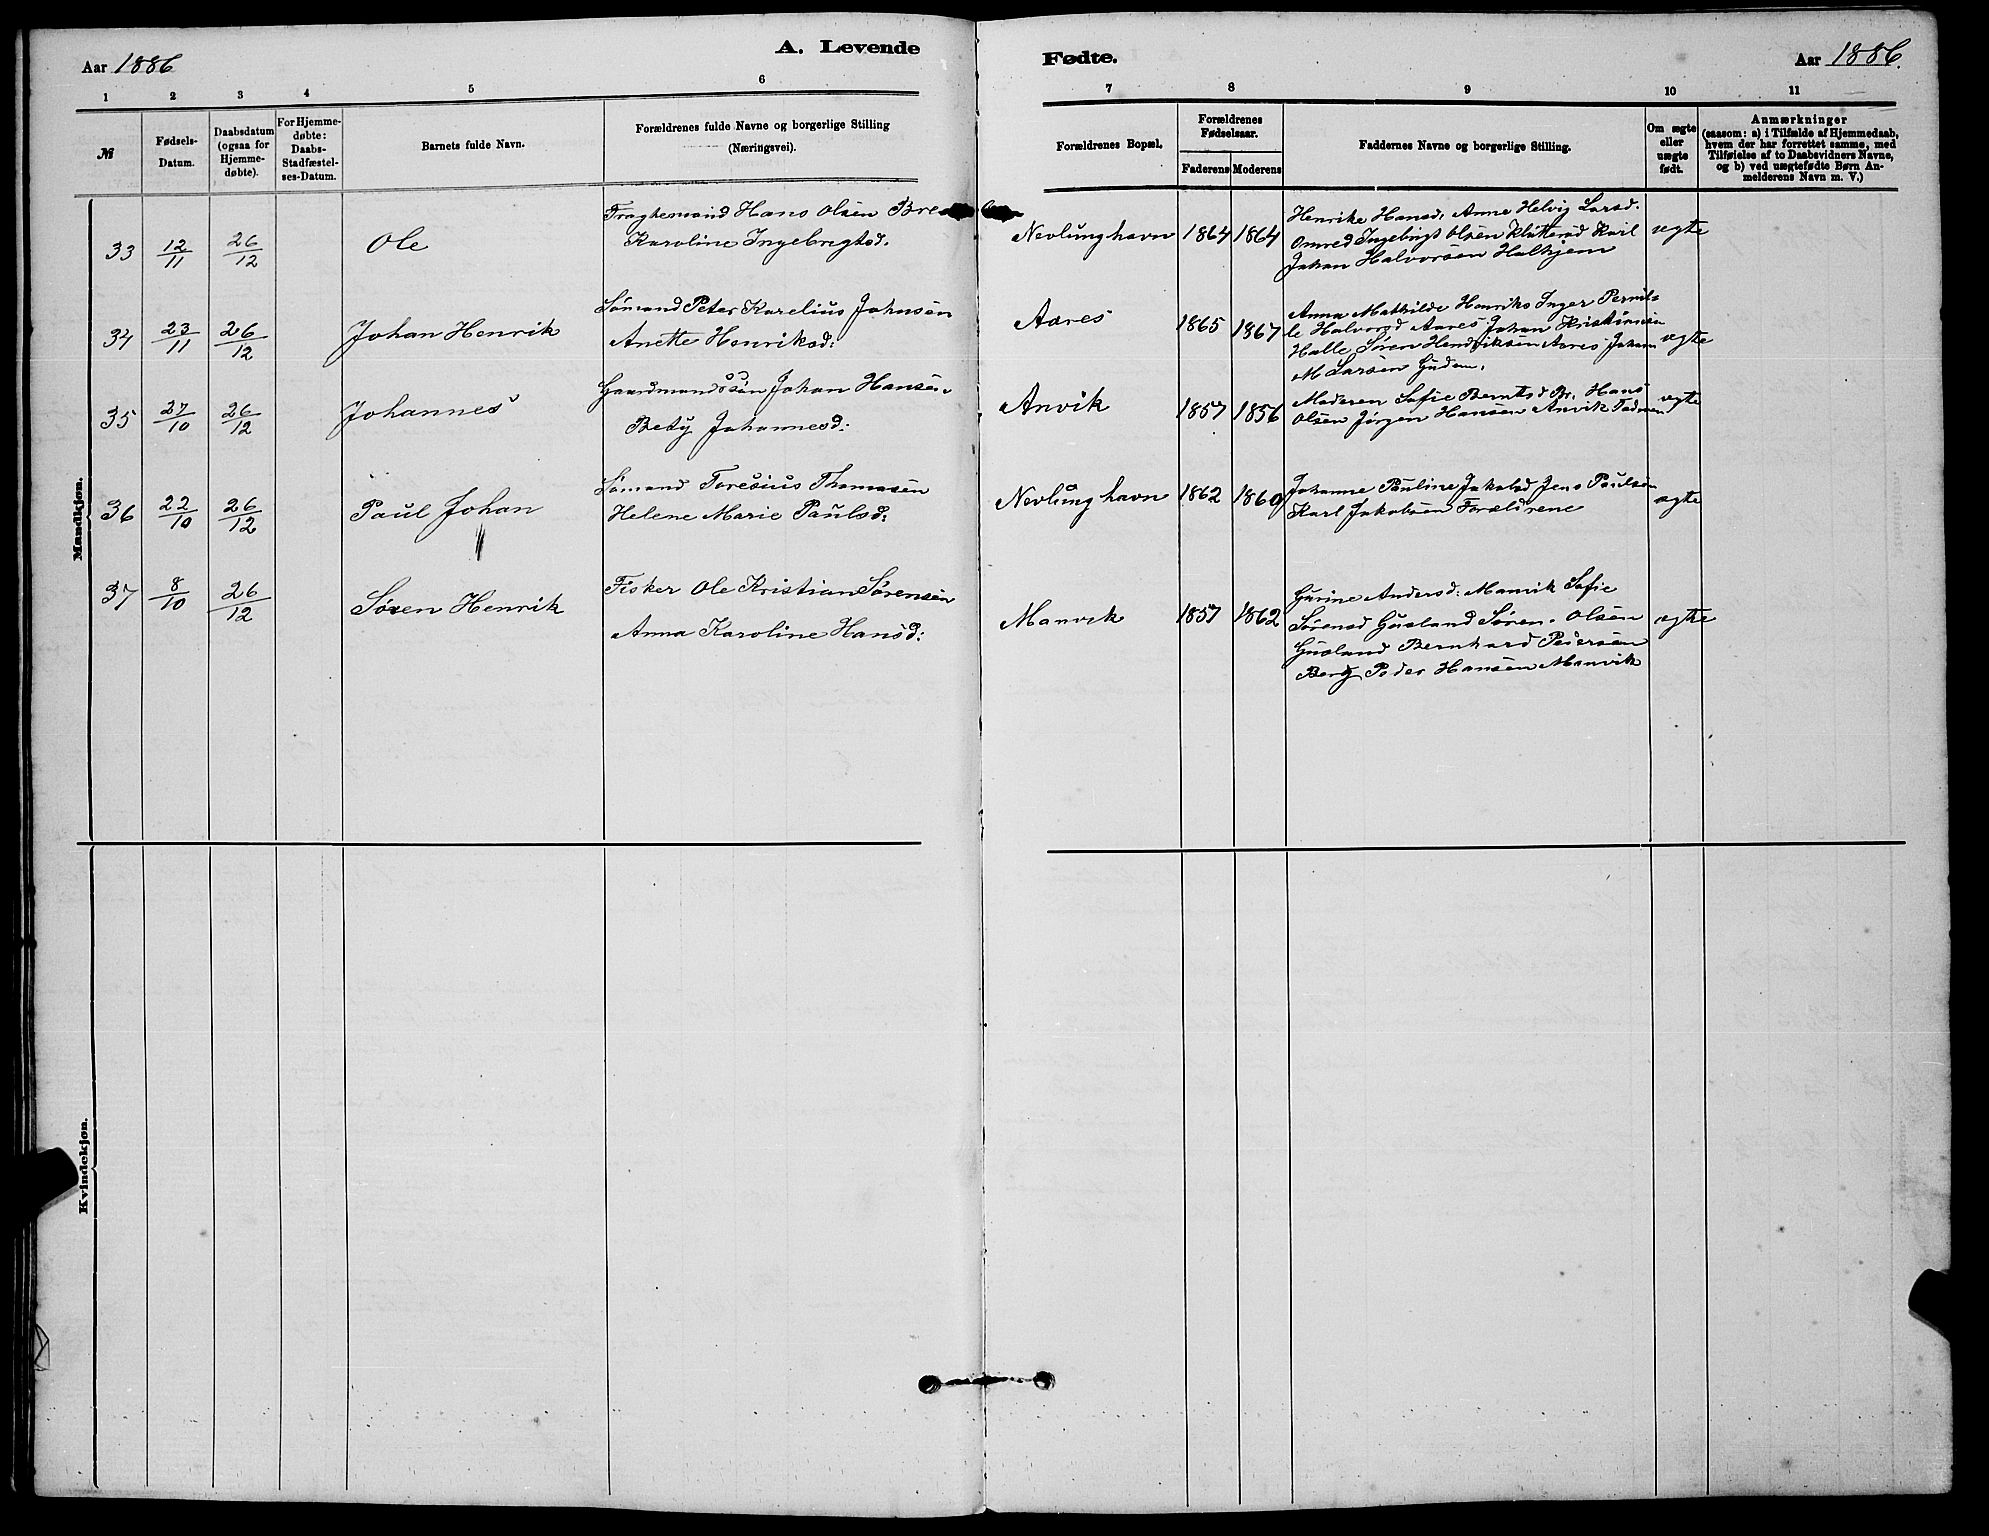 Aar 1886
A. Levende
1 2 3 4 5 6
№
Fødsels-
Datum.
Daabsdatum
(ogsaa for
Hjemme-
døbte).
For Hjemme-
døbte:
Daabs-
Stadfæstel-
ses-Datum.
Barnets fulde Navn.
Forældrenes fulde Navne og borgerlige Stilling
(Næringsvei).
Mandkjøn.
33 12/11 26/12 Ole
Fragtemand Hans Olsen Bre
Karoline Ingebregtsd.
34 23/11 26/12 Johan Henrik
Sømand Peter Karelius Johnsen
Anette Henriksd:
35 27/10 26/12 Johannes
Gaardmandssøn Johan Hansen
Bety Johannesd:
36 22/10 26/12 Paul Johan
Sømand Toresius Thomasen
Helene Marie Paulsd:
37 8/10 26/12 Søren Henrik
Fisker Ole Kristian Sørensen
Anna Karoline Hansd:
Kvindekjøn.
Fødte.
Aar 1886.
7 8 9 10 11
Forældrenes Bopæl.
Forældrenes
Fødselsaar.
Faderens Moderens
Faddernes Navne og borgerlige Stilling.
Om ægte
eller
uægte
født.
Anmærkninger
(saasom: a) i Tilfælde af Hjemmedaab,
hvem der har forrettet samme, med
Tilføielse af to Daabsvidners Navne,
og b) ved uægtefødte Børn An-
melderens Navn m. V.)
Nevlunghavn 1864 1864
Henrike Hansd. Anne Helvig Larsd.
Omred Ingebrigt Olsen Klåtterød Karl
Johan Halvorsen Halkjem
ægte
Aares 1865 1867
Anna Mathilde Henriks Inger Pernil-
le Halvorsd Aares Johan Kristiansen
Halle Søren Hendriksen Aares Johan
M Larsen Gudem.
ægte
Anvik 1857 1856
Moderen Sofie Berntsd Br. Hans
Olsen Jørgen Hansen Anvik Fadren
ægte
Nevlunghavn 1862 1860
Johanne Pauline Jakobsd Jens Paulsen
Karl Jakobsen Forældrene
ægte
Manvik 1857 1862
Gurine Andersd: Manvik Sofie
Sørensd Gusland Søren Olsen
Gusland Bernhard Pedersen
Berg Peder Hansen Manvik
ægte